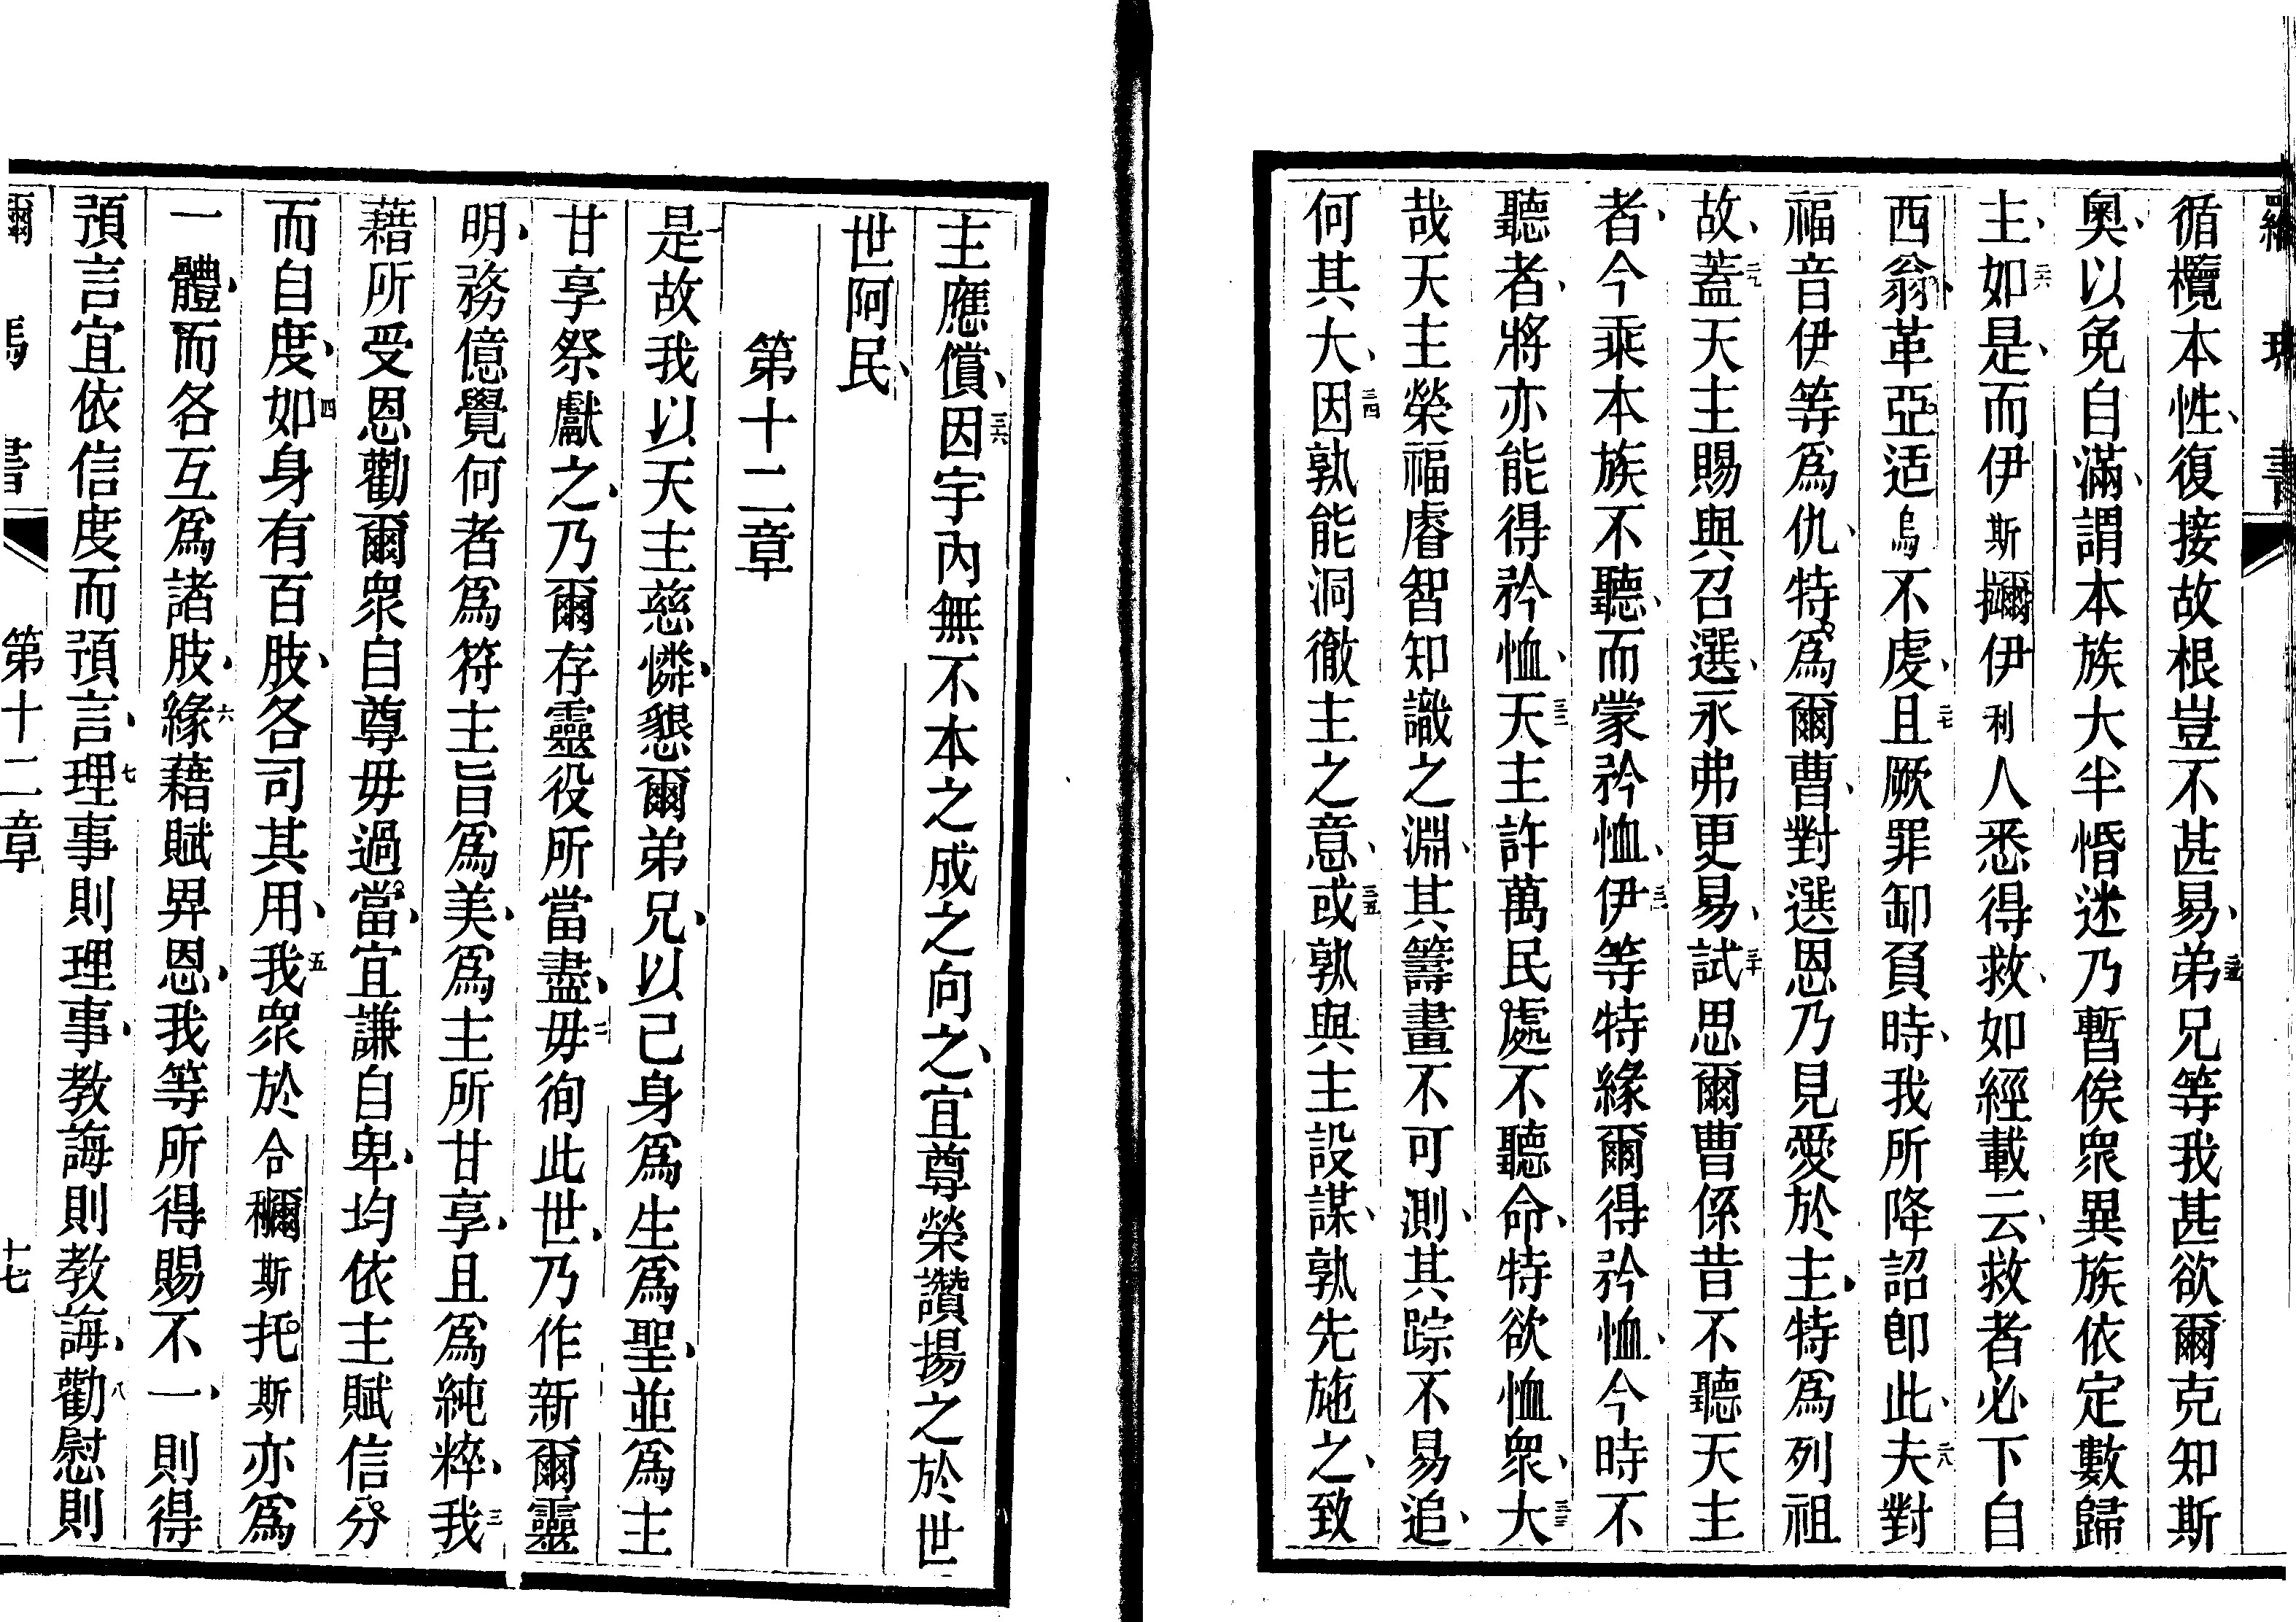 羅瑪書
循欖本性、復接故根豈不甚易、二五弟兄等我甚欲爾克知斯
奧、以免自滿、謂本族大半惛迷乃暫俟衆異族依定數歸
主、二六如是、而伊斯㩶伊利人悉得救、如經載云、救者必下自
西翁、革亞适烏不虔、二七且厥罪卸負時、我所降詔卽此、二八夫對
福音伊等爲仇、特爲爾曹、對選恩乃見愛於主、特爲列祖
故、二九蓋天主賜與召選、永弗更易、三十試思爾曹係昔不聽天主
者、今乘本族不聽、而蒙矜恤、三一伊等特緣爾得矜恤、今時不
聽者、將亦能得矜恤、三二天主許萬民處不聽命、特欲恤衆、三三大
哉天主榮福睿智知識之淵、其籌畫不可測、其踪不易追、
何其大、三四因孰能洞徹主之意、三五或孰與主設謀、孰先施之、致
主應償、三六因宇內無不本之成之向之、宜尊榮讚揚之於世
世阿民、
第十二章
一是故我以天主慈憐、懇爾弟兄、以己身爲生爲聖、並爲主
甘享祭獻之、乃爾存靈役所當盡、二毋徇此世、乃作新爾靈
明、務億覺何者爲符主旨爲美、爲主所甘享、且爲純粹、三我
藉所受恩勸爾衆自尊毋過當、宜謙自卑、均依主賦信分
而自度、四如身有百肢、各司其用、五我衆於合穪斯托斯亦爲
一體、而各互爲諸肢、六緣藉賦畀恩、我等所得賜不一、則得
預言宜依信度而預言、七理事則理事、教誨則教誨、八勸慰則
爾瑪書 第十二章 十七